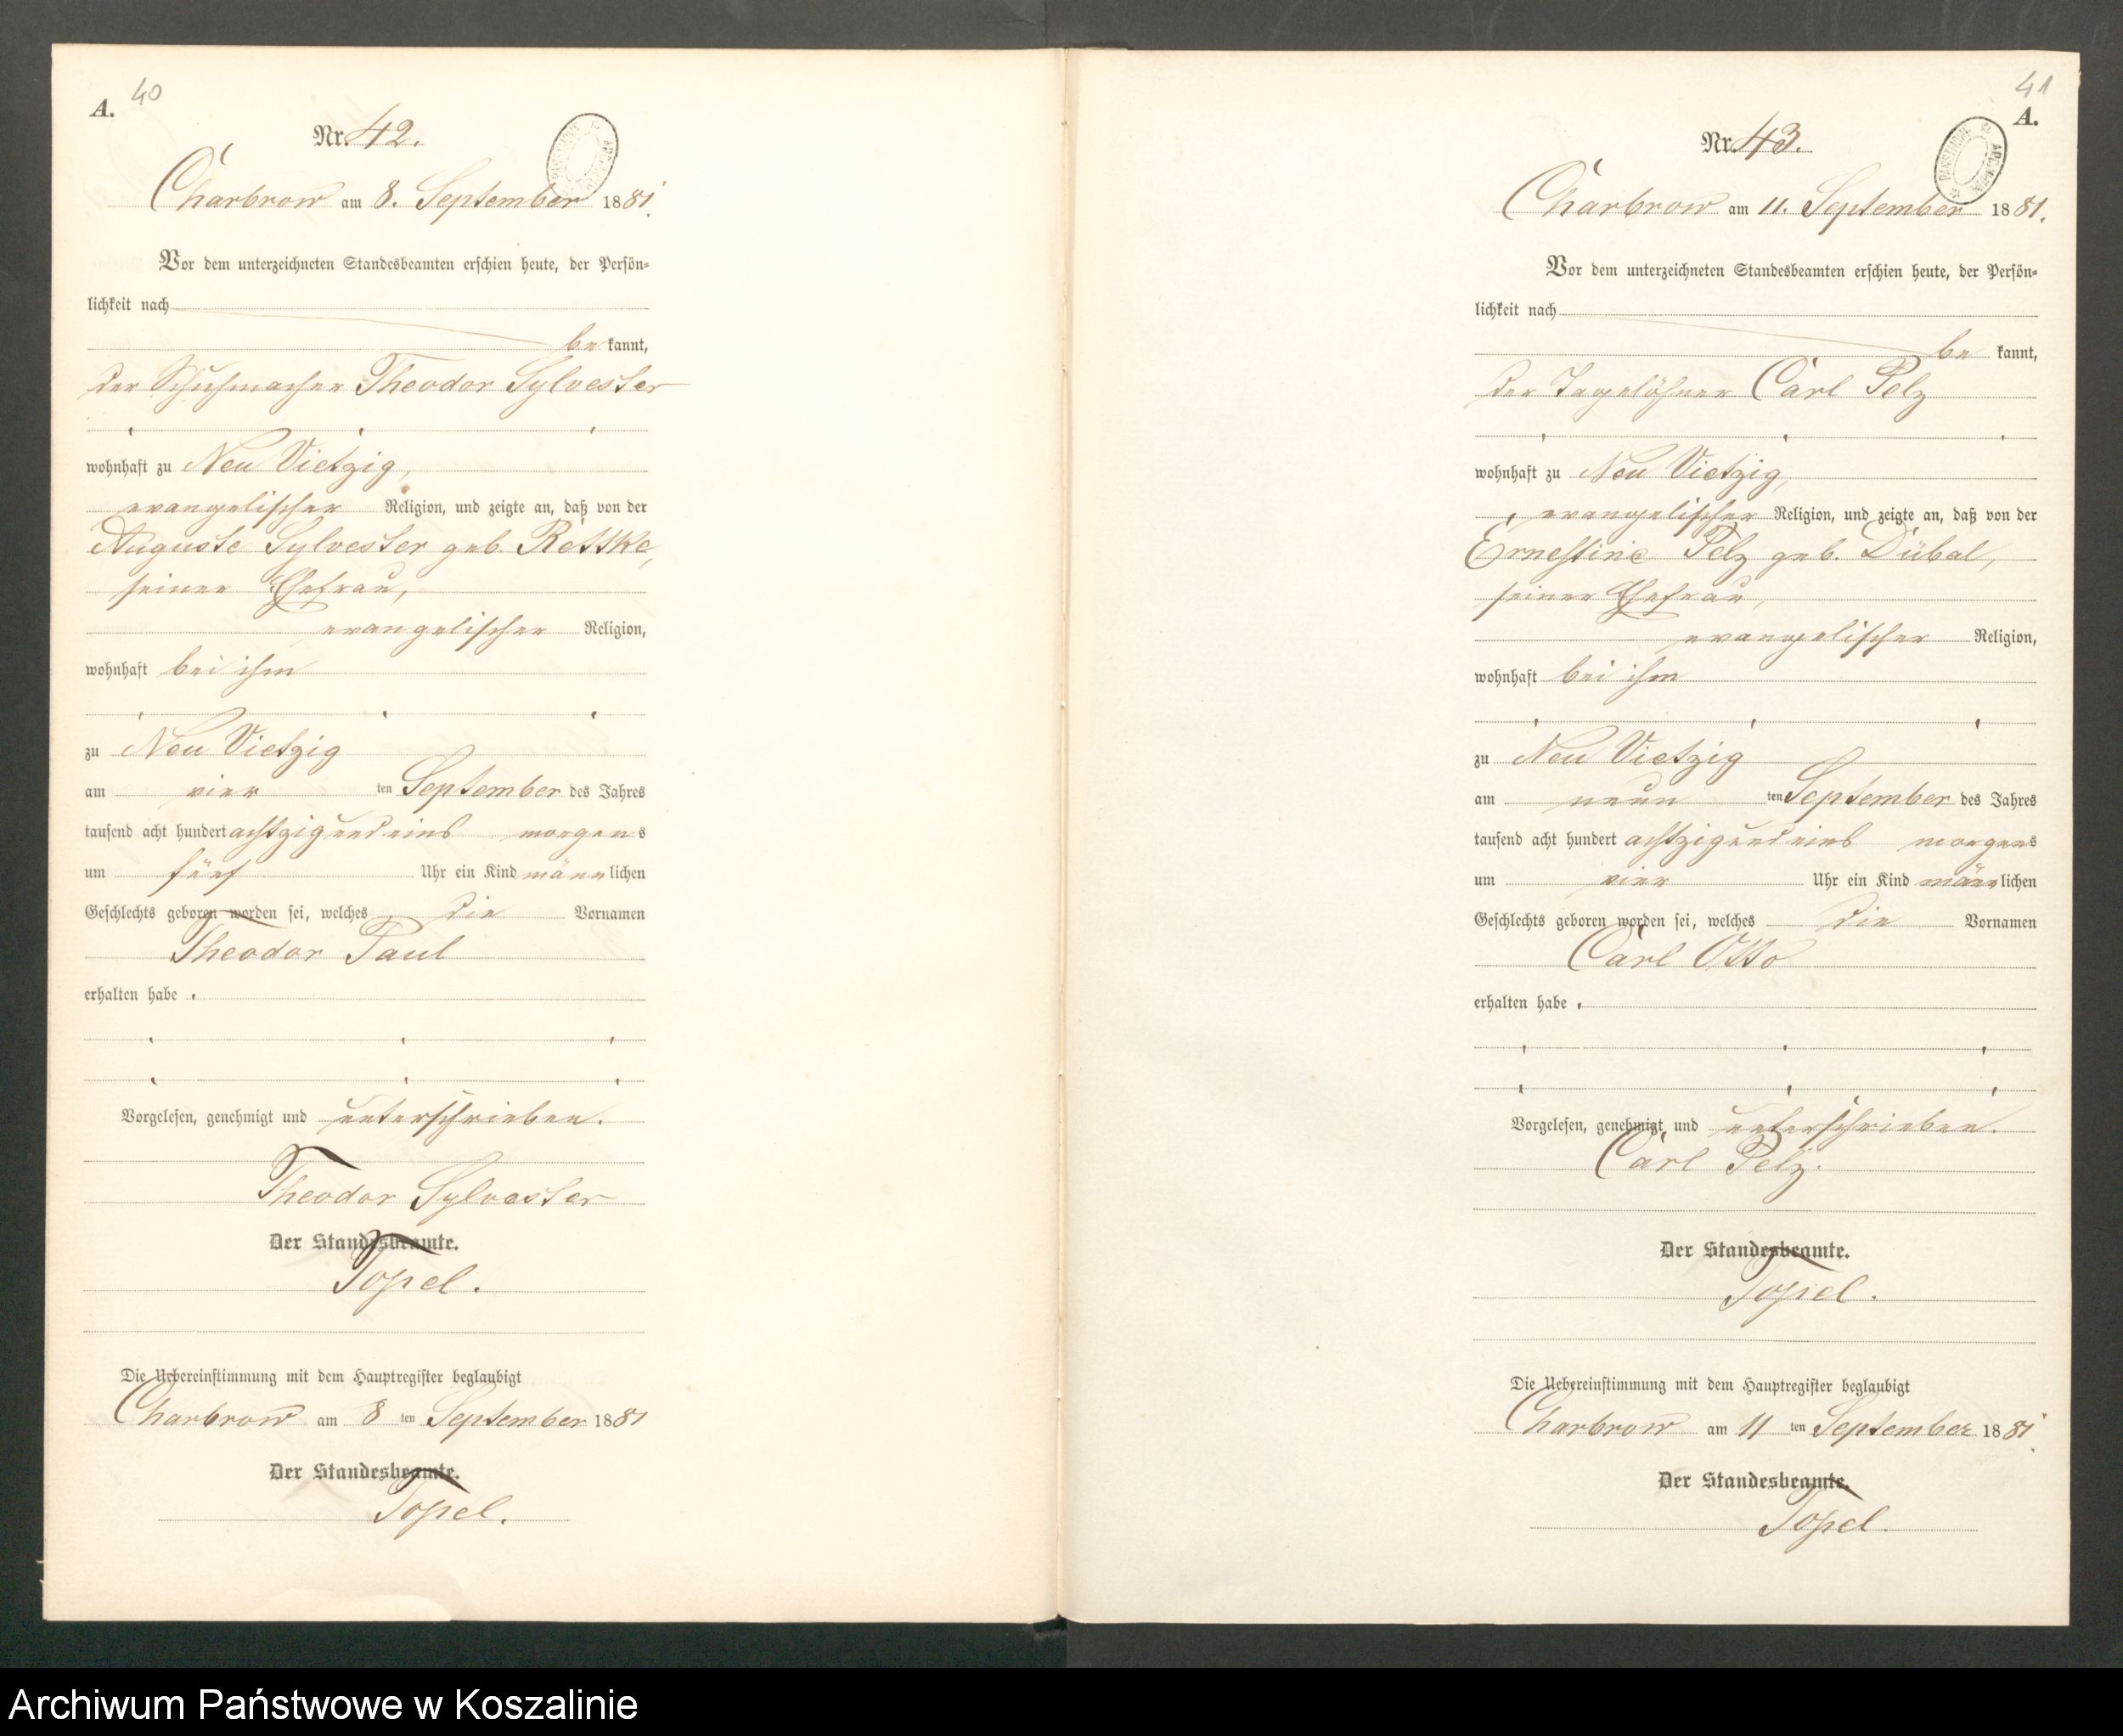 40
A.
Nr. 42.
Charbrow am 8. September 1881.
Vor dem unterzeichneten Standesbeamten erschien heute, der Persön-
lichkeit nach
be kannt,
der Schuhmacher Theodor Sylvester
wohnhaft zu Neu Vietzig,
evangelischer Religion, und zeigte an, daß von der
Auguste Sylvester geb. Rettke,
seiner Ehefrau,
evangelischer Religion,
wohnhaft bei ihm
zu Neu Vietzig
am vier ten September des Jahres
tausend acht hundert achtzig und eins morgens
um fünf Uhr ein Kind männlichen
Geschlechts geboren worden sei, welches die Vornamen
Theodor Paul
erhalten habe.
Vorgelesen, genehmigt und unterschrieben.
Theodor Sylvester
Der Standesbeamte.
Topel.
Die Uebereinstimmung mit dem Hauptregister beglaubigt
Charbrow am 8 ten September 1881
Der Standesbeamte.
Topel.
41
A.
Nr. 43.
Charbrow am 11. September 1881.
Vor dem unterzeichneten Standesbeamten erschien heute, der Persön-
lichkeit nach
be kannt,
der Tagelöhner Carl Pelz
wohnhaft zu Neu Vietzig,
evangelischer Religion, und zeigte an, daß von der
Ernestine Pelz geb. Dübal,
seiner Ehefrau,
evangelischer Religion,
wohnhaft bei ihm
zu Neu Vietzig
am neun ten September des Jahres
tausend acht hundert achtzig und eins morgens
um vier Uhr ein Kind männlichen
Geschlechts geboren worden sei, welches die Vornamen
Carl Otto
erhalten habe.
Vorgelesen, genehmigt und unterschrieben.
Carl Pelz.
Der Standesbeamte.
Topel.
Die Uebereinstimmung mit dem Hauptregister beglaubigt
Charbrow am 11 ten September 1881.
Der Standesbeamte.
Topel.
Archiwum Państwowe w Koszalinie